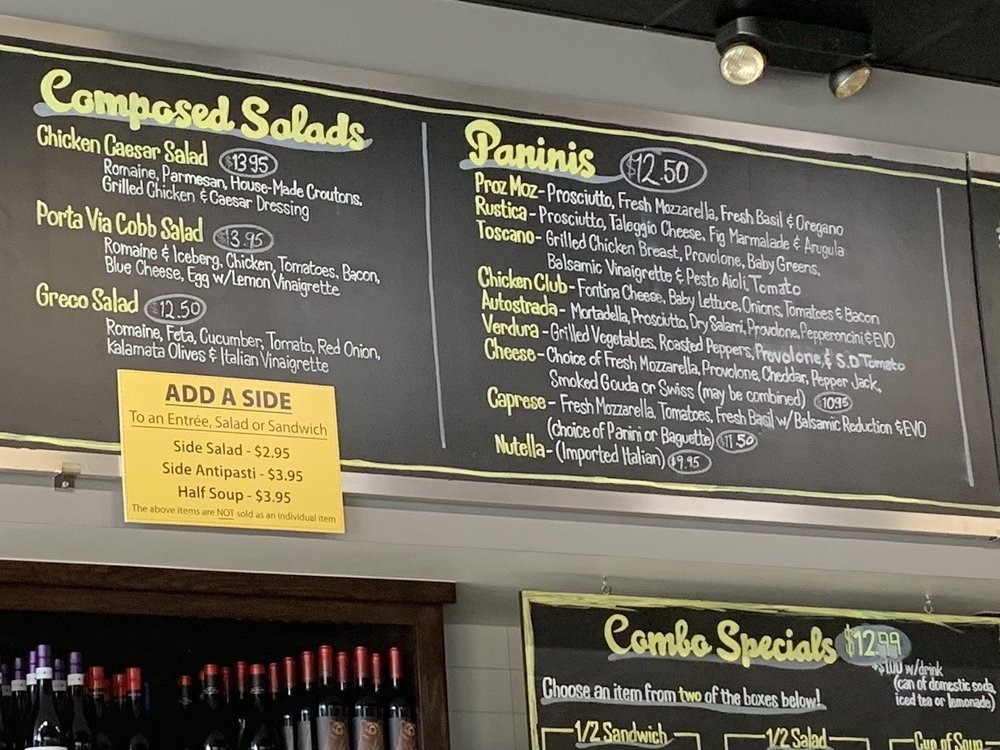 Composed Salads
Chicken Caesar Salad $13.95
Romaine, Parmesan, House-Made Croutons,
Grilled Chicken & Caesar Dressing
Porta Via Cobb Salad $13.95
Romaine & Iceberg, Chicken, Tomatoes, Bacon,
Blue Cheese, Egg w/Lemon Vinaigrette
Greco Salad $12.50
Romaine, Feta, Cucumber, Tomato, Red Onion,
Kalamata Olives & Italian Vinaigrette
ADD A SIDE
To an Entrée, Salad or Sandwich
Side Salad - $2.95
Side Antipasti - $3.95
Half Soup - $3.95
The above items are NOT sold as an individual item
Paninis $12.50
Proz Moz - Prosciutto, Fresh Mozzarella, Fresh Basil & Oregano
Rustica - Prosciutto, Taleggio Cheese, Fig Marmalade & Arugula
Toscano - Grilled Chicken Breast, Provolone, Baby Greens,
Balsamic Vinaigrette & Pesto Aioli, Tomato
Chicken Club - Fontina Cheese, Baby Lettuce, Onions, Tomatoes & Bacon
Autostrada - Mortadella, Prosciutto, Dry Salami, Provolone, Pepperoncini & EVO
Verdura - Grilled Vegetables, Roasted Peppers, Provolone, & S.D Tomato
Cheese - Choice of Fresh Mozzarella, Provolone, Cheddar, Pepper Jack,
Smoked Gouda or Swiss (may be combined) $10.95
Caprese - Fresh Mozzarella, Tomatoes, Fresh Basil w/ Balsamic Reduction & EVO
(choice of Panini or Baguette) $11.50
Nutella - (Imported Italian) $9.95
Combo Specials $12.99
+$1.00 w/drink
(can of domestic soda,
iced tea or lemonade)
Choose an item from two of the boxes below!
1/2 Sandwich
1/2 Salad
Cup of Soup